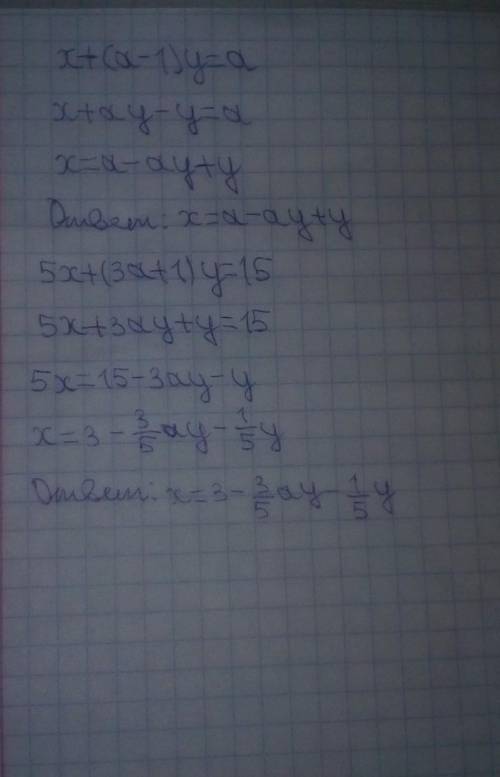 x+(a-1)y=a
x+ay-y=a
x=a-ay+y
Ответ: x=a-ay+y
5x+(3a+1)y=15
5x+3ay+y=15
5x=15-3ay-y
x=3-3/5ay-1/5y
Ответ: x=3-3/5ay-1/5y